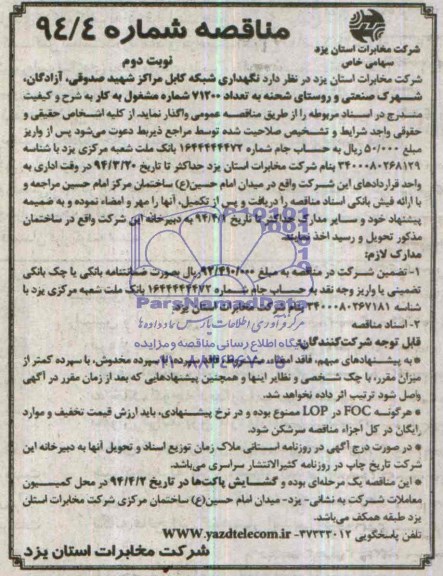 مناقصه شماره ۹۴/۴
شرکت مخابرات استان یزد
سهامی خاص
نوبت دوم
شرکت مخابرات استان یزد در نظر دارد نگهداری شبکه کابل مراکز شهید صدوقی، آزادگان،
شهرک صنعتی و روستای شحنه به تعداد ۷۱۲۰۰ شماره مشغول به کار به شرح و کیفیت
مندرج در اسناد مربوطه را از طریق مناقصه عمومی واگذار نماید. از کلیه اشخاص حقیقی و
حقوقی واجد شرایط و تشخیص صلاحیت شده توسط مراجع ذیربط دعوت می‌شود پس از واریز
مبلغ ۵۰/۰۰۰ ریال به حساب جام شماره ۱۶۴۴۴۴۴۴۷۲ بانک ملت شعبه مرکزی یزد با شناسه
۳۴۰۰۰۸۰۲۶۸۱۲۹ بنام شرکت مخابرات استان یزد حداکثر تا تاریخ ۹۴/۳/۲۰ در وقت اداری به
واحد قراردادهای این شرکت واقع در میدان امام حسین(ع) ساختمان مرکز امام حسین مراجعه و
با ارائه فیش بانکی اسناد مناقصه را دریافت و پس از تکمیل، آنها را مهر و امضاء نموده و به ضمیمه
پیشنهاد خود و سایر مدارک حداکثر تا تاریخ ۹۴/۴/۱ به دبیرخانه این شرکت واقع در ساختمان
مذکور تحویل و رسید اخذ نمایند.
مدارک لازم:
۱- تضمین شرکت در مناقصه به مبلغ ۹۲/۴۱۰/۰۰۰ ریال بصورت ضمانتنامه بانکی یا چک بانکی
تضمینی یا واریز وجه نقد به حساب جام شماره ۱۶۴۴۴۴۴۴۷۲ بانک ملت شعبه مرکزی یزد با
شناسه ۳۴۰۰۰۸۰۲۶۷۱۸۱ بنام شرکت مخابرات یزد.
ParsNamadData
مرکز فرآوری اطلاعات پارس نماد داده‌ها
۲- اسناد مناقصه
پایگاه اطلاع رسانی مناقصه و مزایده
قابل توجه شرکت‌کنندگان:
۰۲۱-۸۸۳۴۹۶۷۰
* به پیشنهادهای مبهم، فاقد امضاء، مشروط، فاقد سپرده یا سپرده مخدوش، یا سپرده کمتر از
میزان مقرر، یا چک شخصی و نظایر اینها و همچنین پیشنهادهایی که بعد از زمان مقرر در آگهی
واصل شود ترتیب اثر داده نخواهد شد.
* هرگونه FOC در LOP ممنوع بوده و در نرخ پیشنهادی، باید ارزش قیمت تخفیف و موارد
رایگان در کل اجزاء مناقصه سرشکن شود.
* در صورت درج آگهی در روزنامه استانی ملاک زمان توزیع اسناد و تحویل آنها به دبیرخانه این
شرکت تاریخ چاپ در روزنامه کثیرالانتشار سراسری می‌باشد.
* این مناقصه یک مرحله‌ای بوده و گشایش پاکت‌ها در تاریخ ۹۴/۴/۲ در محل کمیسیون
معاملات شرکت به نشانی- یزد- میدان امام حسین(ع) ساختمان مرکزی شرکت مخابرات استان
یزد طبقه همکف می‌باشد.
تلفن پاسخگویی ۳۷۳۳۳۰۱۲- WWW.yazdtelecom.ir
شرکت مخابرات استان یزد